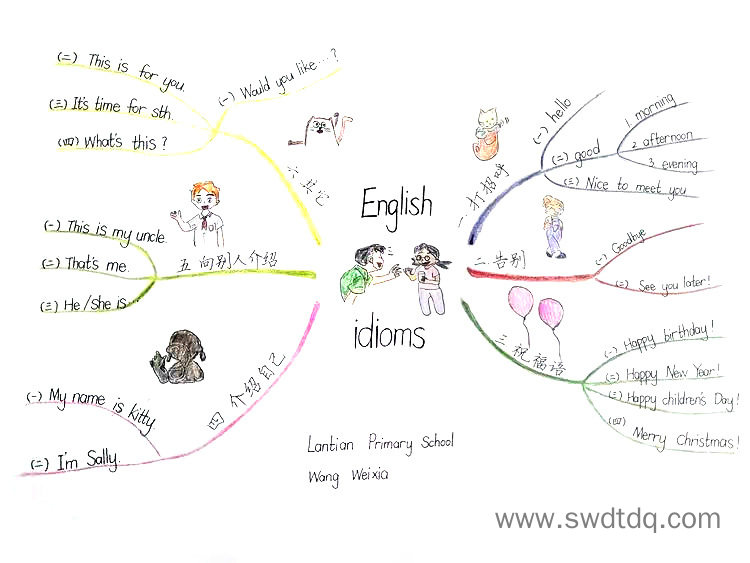 English
idioms
一.打招呼
(一) hello
(二) good
1. morning
2. afternoon
3. evening
(三) Nice to meet you
二.告别
(一) Goodbye
(二) See you later!
三.祝福语
(一) Happy birthday!
(二) Happy New Year!
(三) Happy children's Day!
(四) Merry Christmas!
四 介绍自己
(一) My name is kitty.
(二) I'm Sally.
五 向别人介绍
(一) This is my uncle.
(二) That's me.
(三) He/she is...
六.其它
(一) Would you like...?
(二) This is for you.
(三) It's time for sth.
(四) What's this?
Lantian Primary School
Wang Weixia
www.swdtdq.com